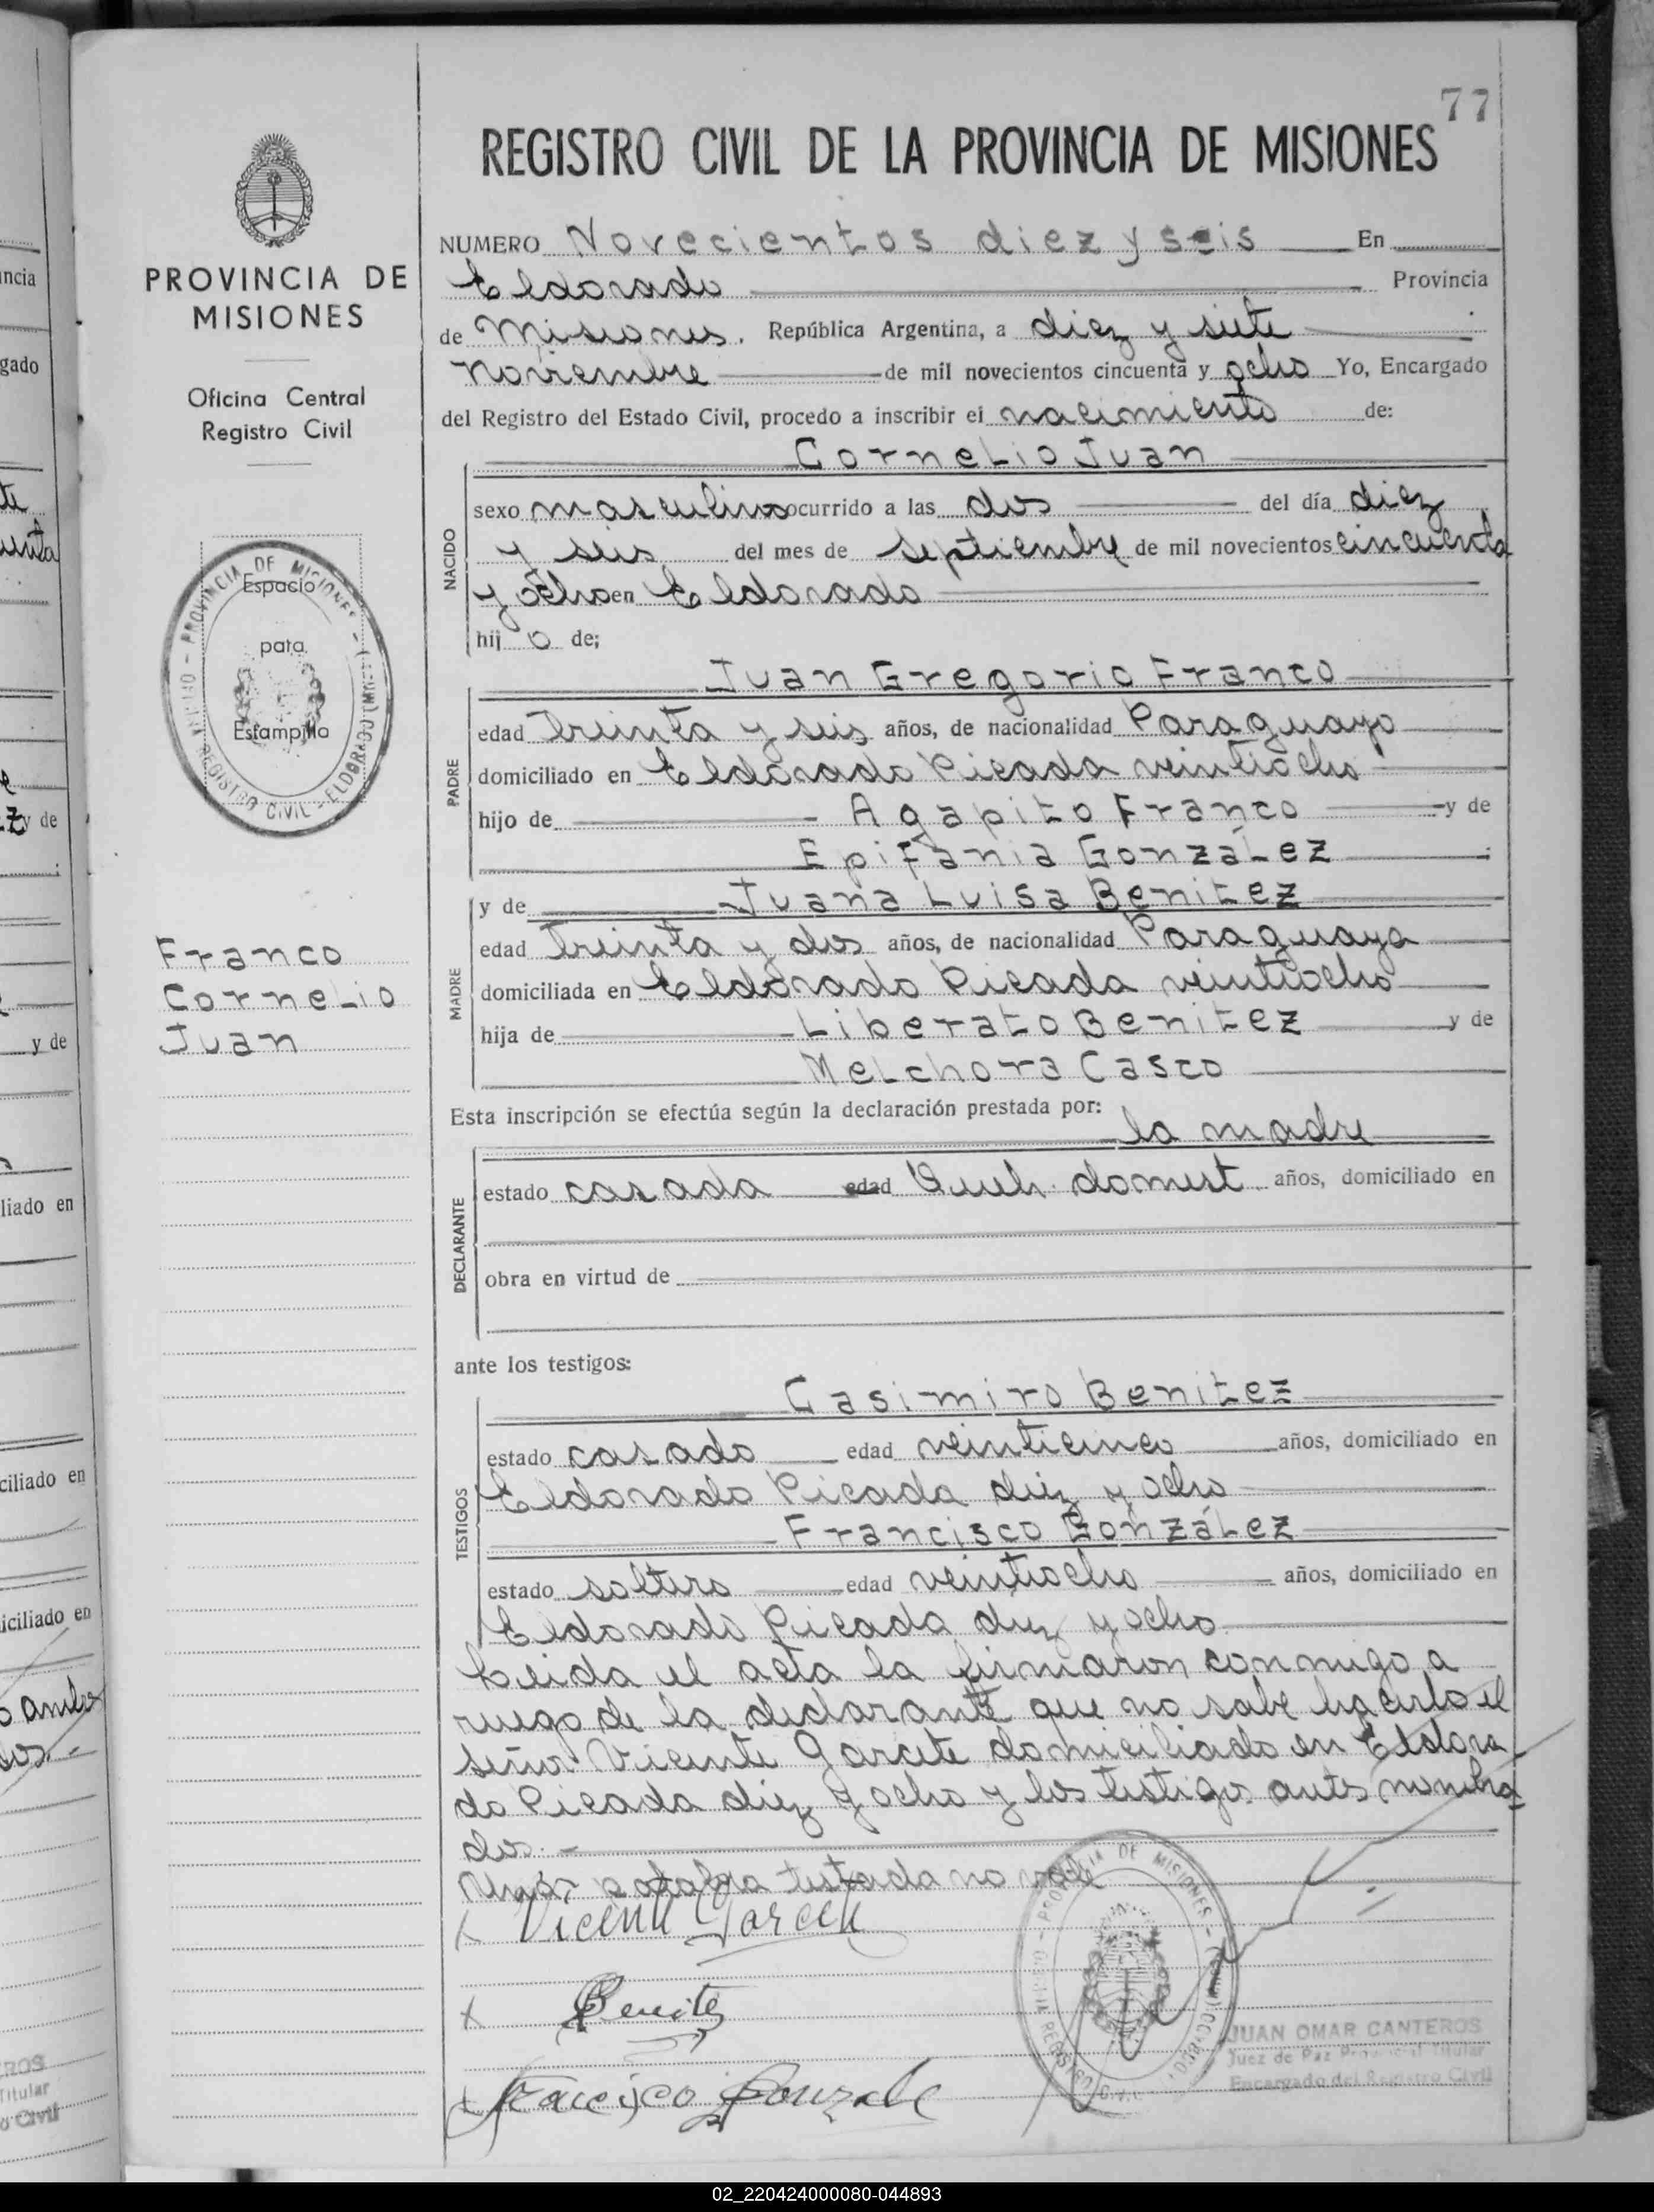 77
REGISTRO CIVIL DE LA PROVINCIA DE MISIONES
PROVINCIA DE
MISIONES
Oficina Central
Registro Civil
Espacio
para
Estampilla
PROVINCIA DE MISIONES
REGISTRO CIVIL - ELDORADO
Franco
Cornelio
Juan
NUMERO Novecientos diez y seis En
Eldorado Provincia
de Misiones. República Argentina, a diez y siete
Noviembre de mil novecientos cincuenta y ocho Yo, Encargado
del Registro del Estado Civil, procedo a inscribir el nacimiento de:
Cornelio Juan
NACIDO
sexo masculino ocurrido a las dos del día diez
y seis del mes de septiembre de mil novecientos cincuenta
y ocho en Eldorado
hij o de;
Juan Gregorio Franco
PADRE
edad Treinta y seis años, de nacionalidad Paraguayo
domiciliado en Eldorado Picada veintiocho
hijo de Agapito Franco y de
Epifania González
MADRE
y de Juana Luisa Benitez
edad Treinta y dos años, de nacionalidad Paraguaya
domiciliada en Eldorado Picada veintiocho
hija de Liberato Benitez y de
Melchora Casco
Esta inscripción se efectúa según la declaración prestada por:
la madre
DECLARANTE
estado casada edad Queh. domest. años, domiciliado en
obra en virtud de
ante los testigos:
Casimiro Benitez
TESTIGOS
estado casado edad veinticinco años, domiciliado en
Eldorado Picada diez y ocho
Francisco González
estado soltero edad veintiocho años, domiciliado en
Eldorado Picada diez y ocho
Leida el acta la firmaron conmigo a
ruego de la declarante que no sabe hacerlo el
señor Vicente Garcete domiciliado en Eldora
do Picada diez y ocho y los testigos antes nombra
dos.-
palabra testada no vale
x Vicente Garcete
x Benitez
x Francisco Gonzale
PROVINCIA DE MISIONES
JUAN OMAR CANTEROS
Juez de Paz Provincial Titular
Encargado del Registro Civil
02_220424000080-044893